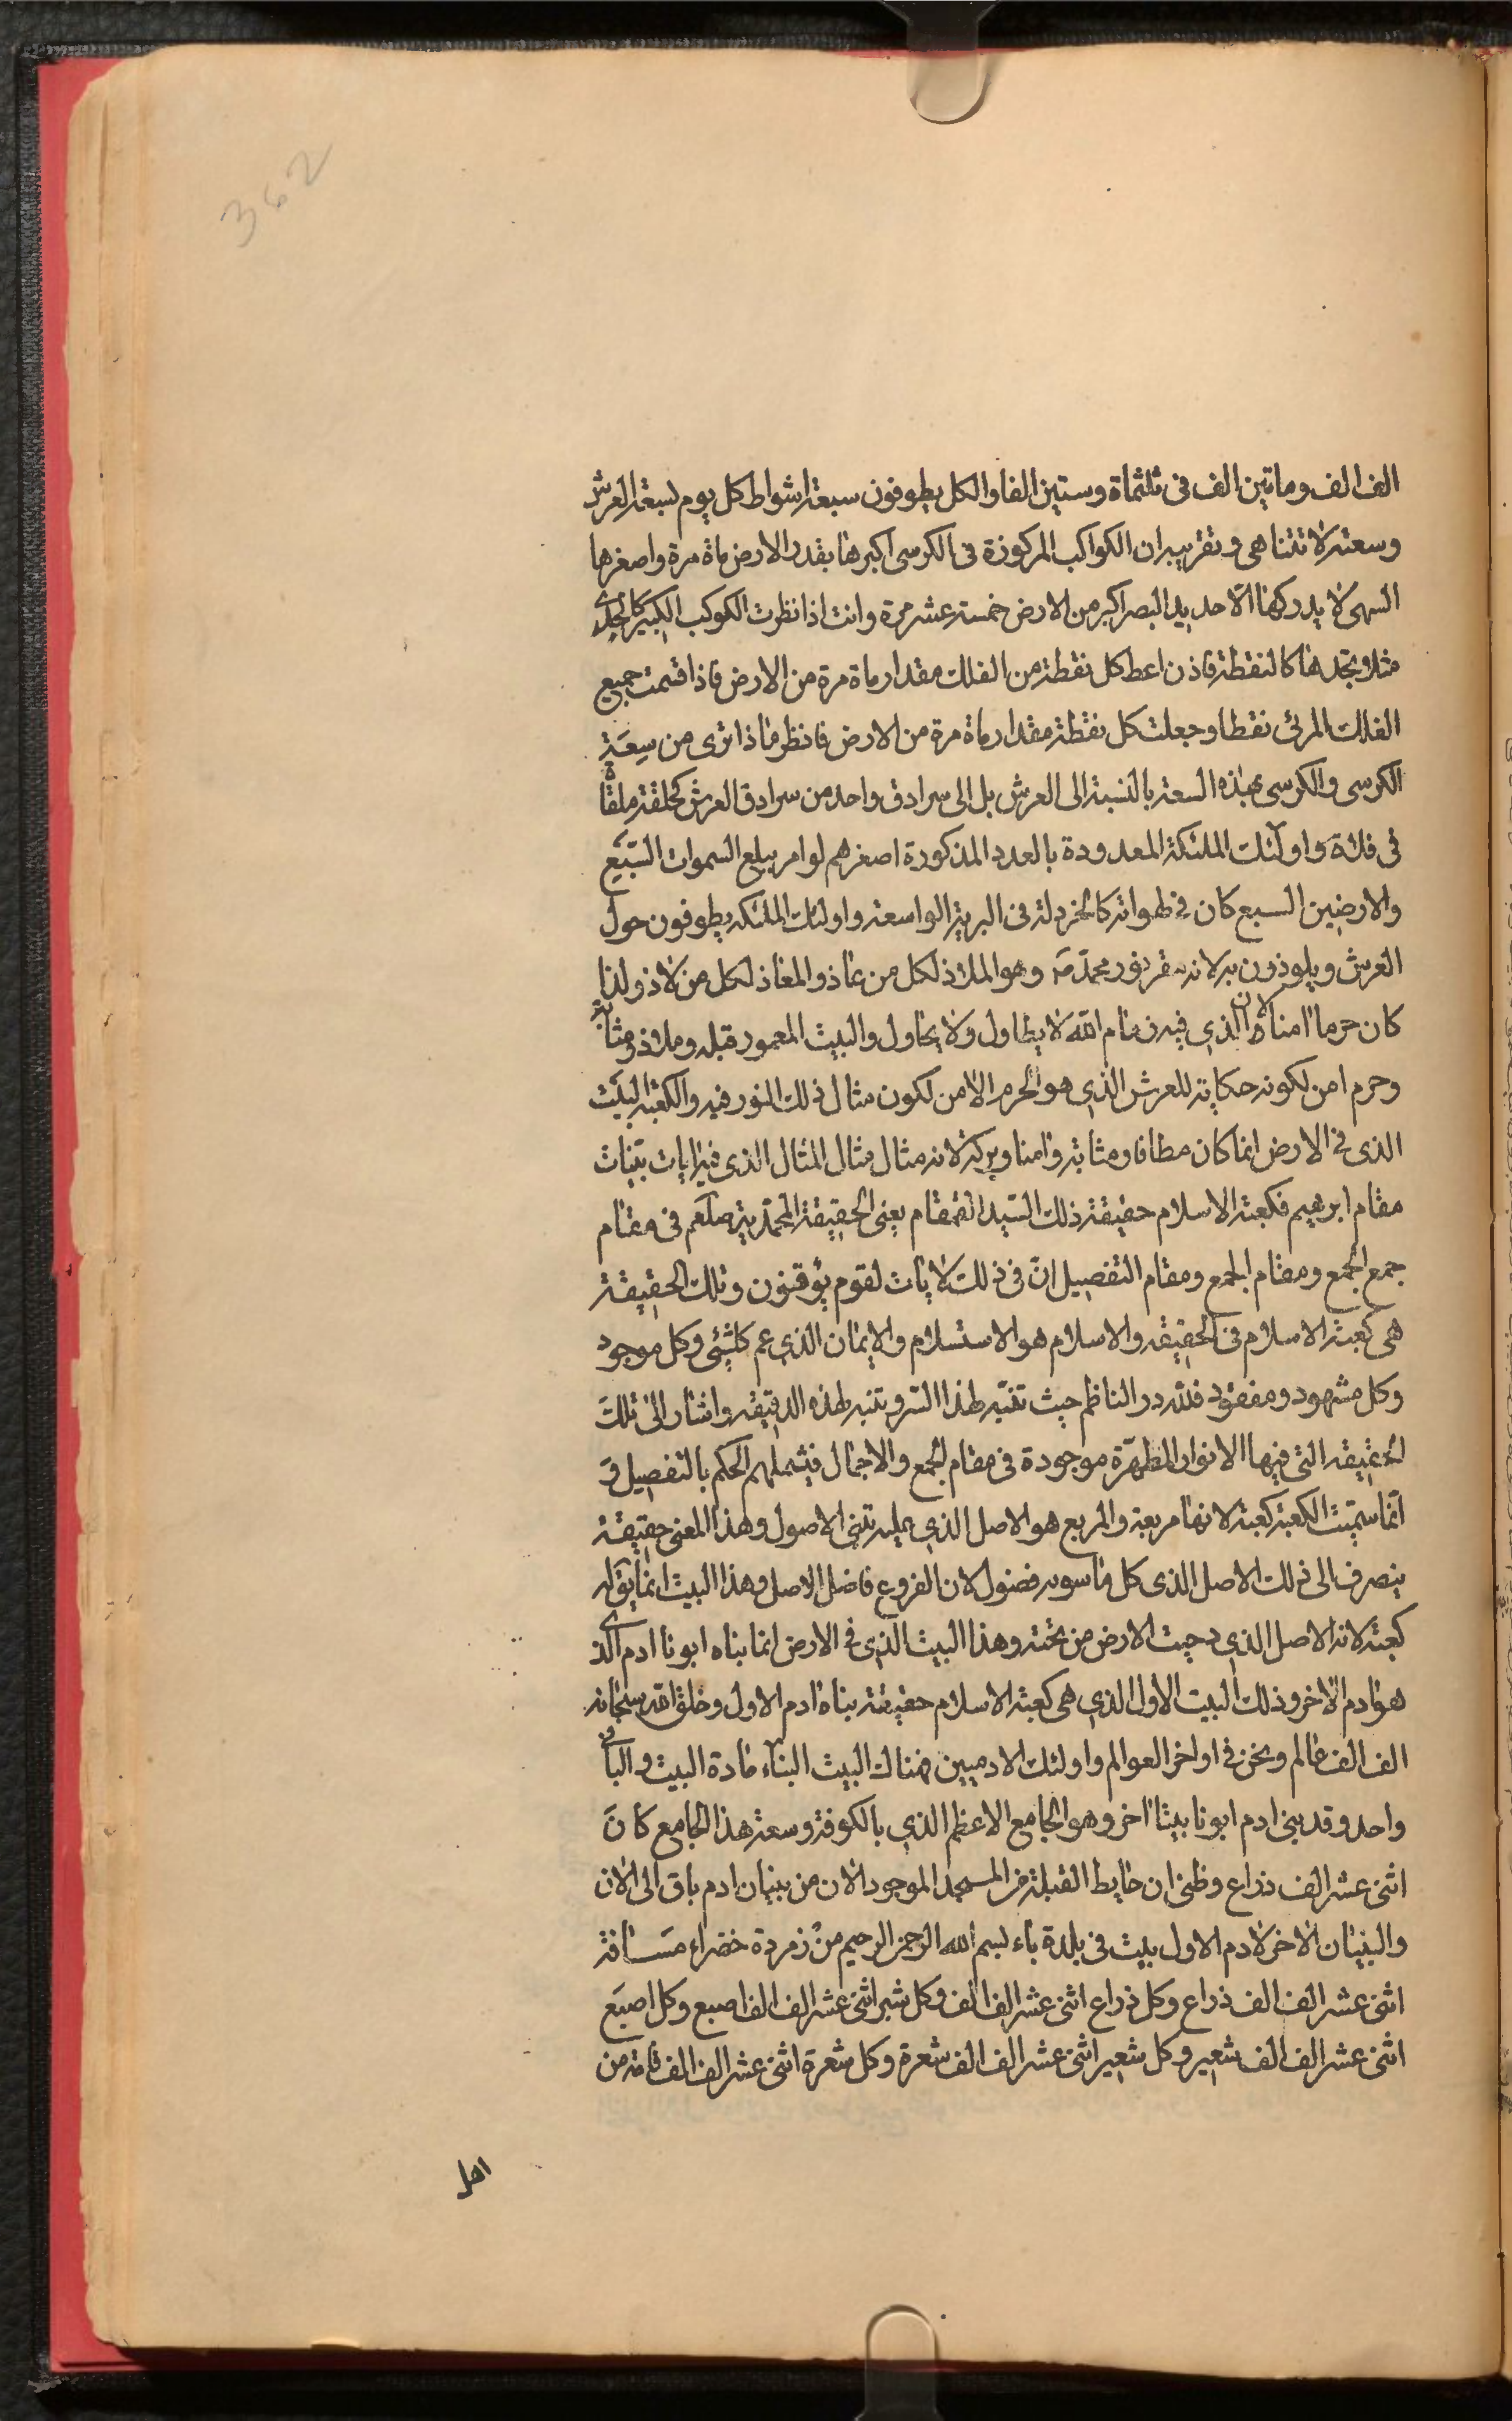 362
الف الف وماتين الف فى ثلثماة وستين الفا والكل يطوفون سبعة اشواط كل يوم لسعة العرش
وسعته لا تتناهى وتقريبه ان الكواكب المركوزة فى الكرسى اكبرها بقدر الارض ماة مرة واصغرها
السهى لا يدركها الا حديد البصر اكبر من الارض خمسة عشر مرة وانت اذا نظرت الكوكب الكبير كالجدى
مثلا وتجدها كالنقطة فاذن اعط كل نقطة من الفلك مقدار ماة مرة من الارض فاذا قسمت جميع
الفلك المرئى نقطا وجعلت كل نقطة مقدار ماة مرة من الارض فانظر ماذا ترى من سعة
الكرسى والكرسى بهذه السعة بالنسبة الى العرش بل الى سرادق واحد من سرادق العرش كحلقة ملقاة
فى فلاة واولئك الملئكة المعدودة بالعدد المذكورة اصغرهم لو امر ببلع السموات السبع
والارضين السبع كان فى لهواته كالخردلة فى البرية الواسعة واولئك الملئكة يطوفون حول
العرش ويلوذون به لانه مقر نور محمد ص وهو الملاذ لكل من عاذ والمعاذ لكل من لاذ ولذا
كان حرما امنا لان الذى فيه زمام الله لا يطاول ولا يحاول والبيت المعمور قبله وملاذ ومثابة
وحرم امن لكونه حكاية للعرش الذى هو الحرم الامن لكون مثال ذلك النور فيه والكعبة البيت
الذى فى الارض انما كان مطافا ومثابة وامنا وبركة لانه مثال مثال المثال الذى فيه ايات بينات
مقام ابرهيم فكعبة الاسلام حقيقة ذلك السيد القمقام يعنى الحقيقة المحمدية صلعم فى مقام
جمع الجمع ومقام الجمع ومقام التفصيل ان فى ذلك لايات لقوم يوقنون وتلك الحقيقة
هى كعبة الاسلام فى الحقيقه والاسلام هو الاستسلام والايمان الذى عم كلشئ وكل موجود
وكل مشهود ومفقود فلله در الناظم حيث تنبه لهذا السر وتنبه لهذه الدقيقه واشار الى تلك
الحقيقه التى فيها الانوار المطهرة موجودة فى مقام الجمع والاجمال فيشملهم الحكم بالتفصيل و
انما سميت الكعبة كعبة لانها مربعة والمربع هو الاصل الذى عليه تبنى الاصول وهذا المعنى حقيقة
ينصرف الى ذلك الاصل الذى كل ما سويه فضول لان الفروع فاضل الاصل وهذا البيت انما يق له
كعبة لانه الاصل الذى دحيت الارض من تحته وهذا البيت الذى فى الارض انما بناه ابونا ادم الذى
هو ادم الاخر وذلك البيت الاول الذى هى كعبة الاسلام حقيقة بناه ادم الاول وخلق الله سبحانه
الف الف عالم ونحن فى اواخر العوالم واولئك الادميين فهناك البيت البناء مادة البيت والبانى
واحد وقد بنى ادم ابونا بيتا اخر وهو الجامع الاعظم الذى بالكوفة وسعة هذا الجامع كان
اثنى عشر الف ذراع وظنى ان حايط القبلة من المسجد الموجود الان من بنيان ادم باق الى الان
والبنيان الاخر لادم الاول بيت فى بلدة باء بسم الله الرحمن الرحيم من زمردة خضراء مسافة
اثنى عشر الف الف ذراع وكل ذراع اثنى عشر الف الف وكل شبر اثنى عشر الف الف اصبع وكل اصبع
اثنى عشر الف الف شعير وكل شعير اثنى عشر الف الف شعرة وكل شعرة اثنى عشر الف الف قامة من
اهل